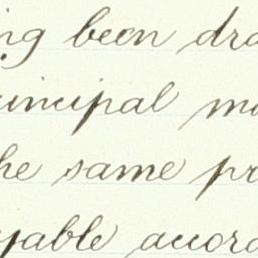 ing been dra
incipal mo
he same pr
yable accord